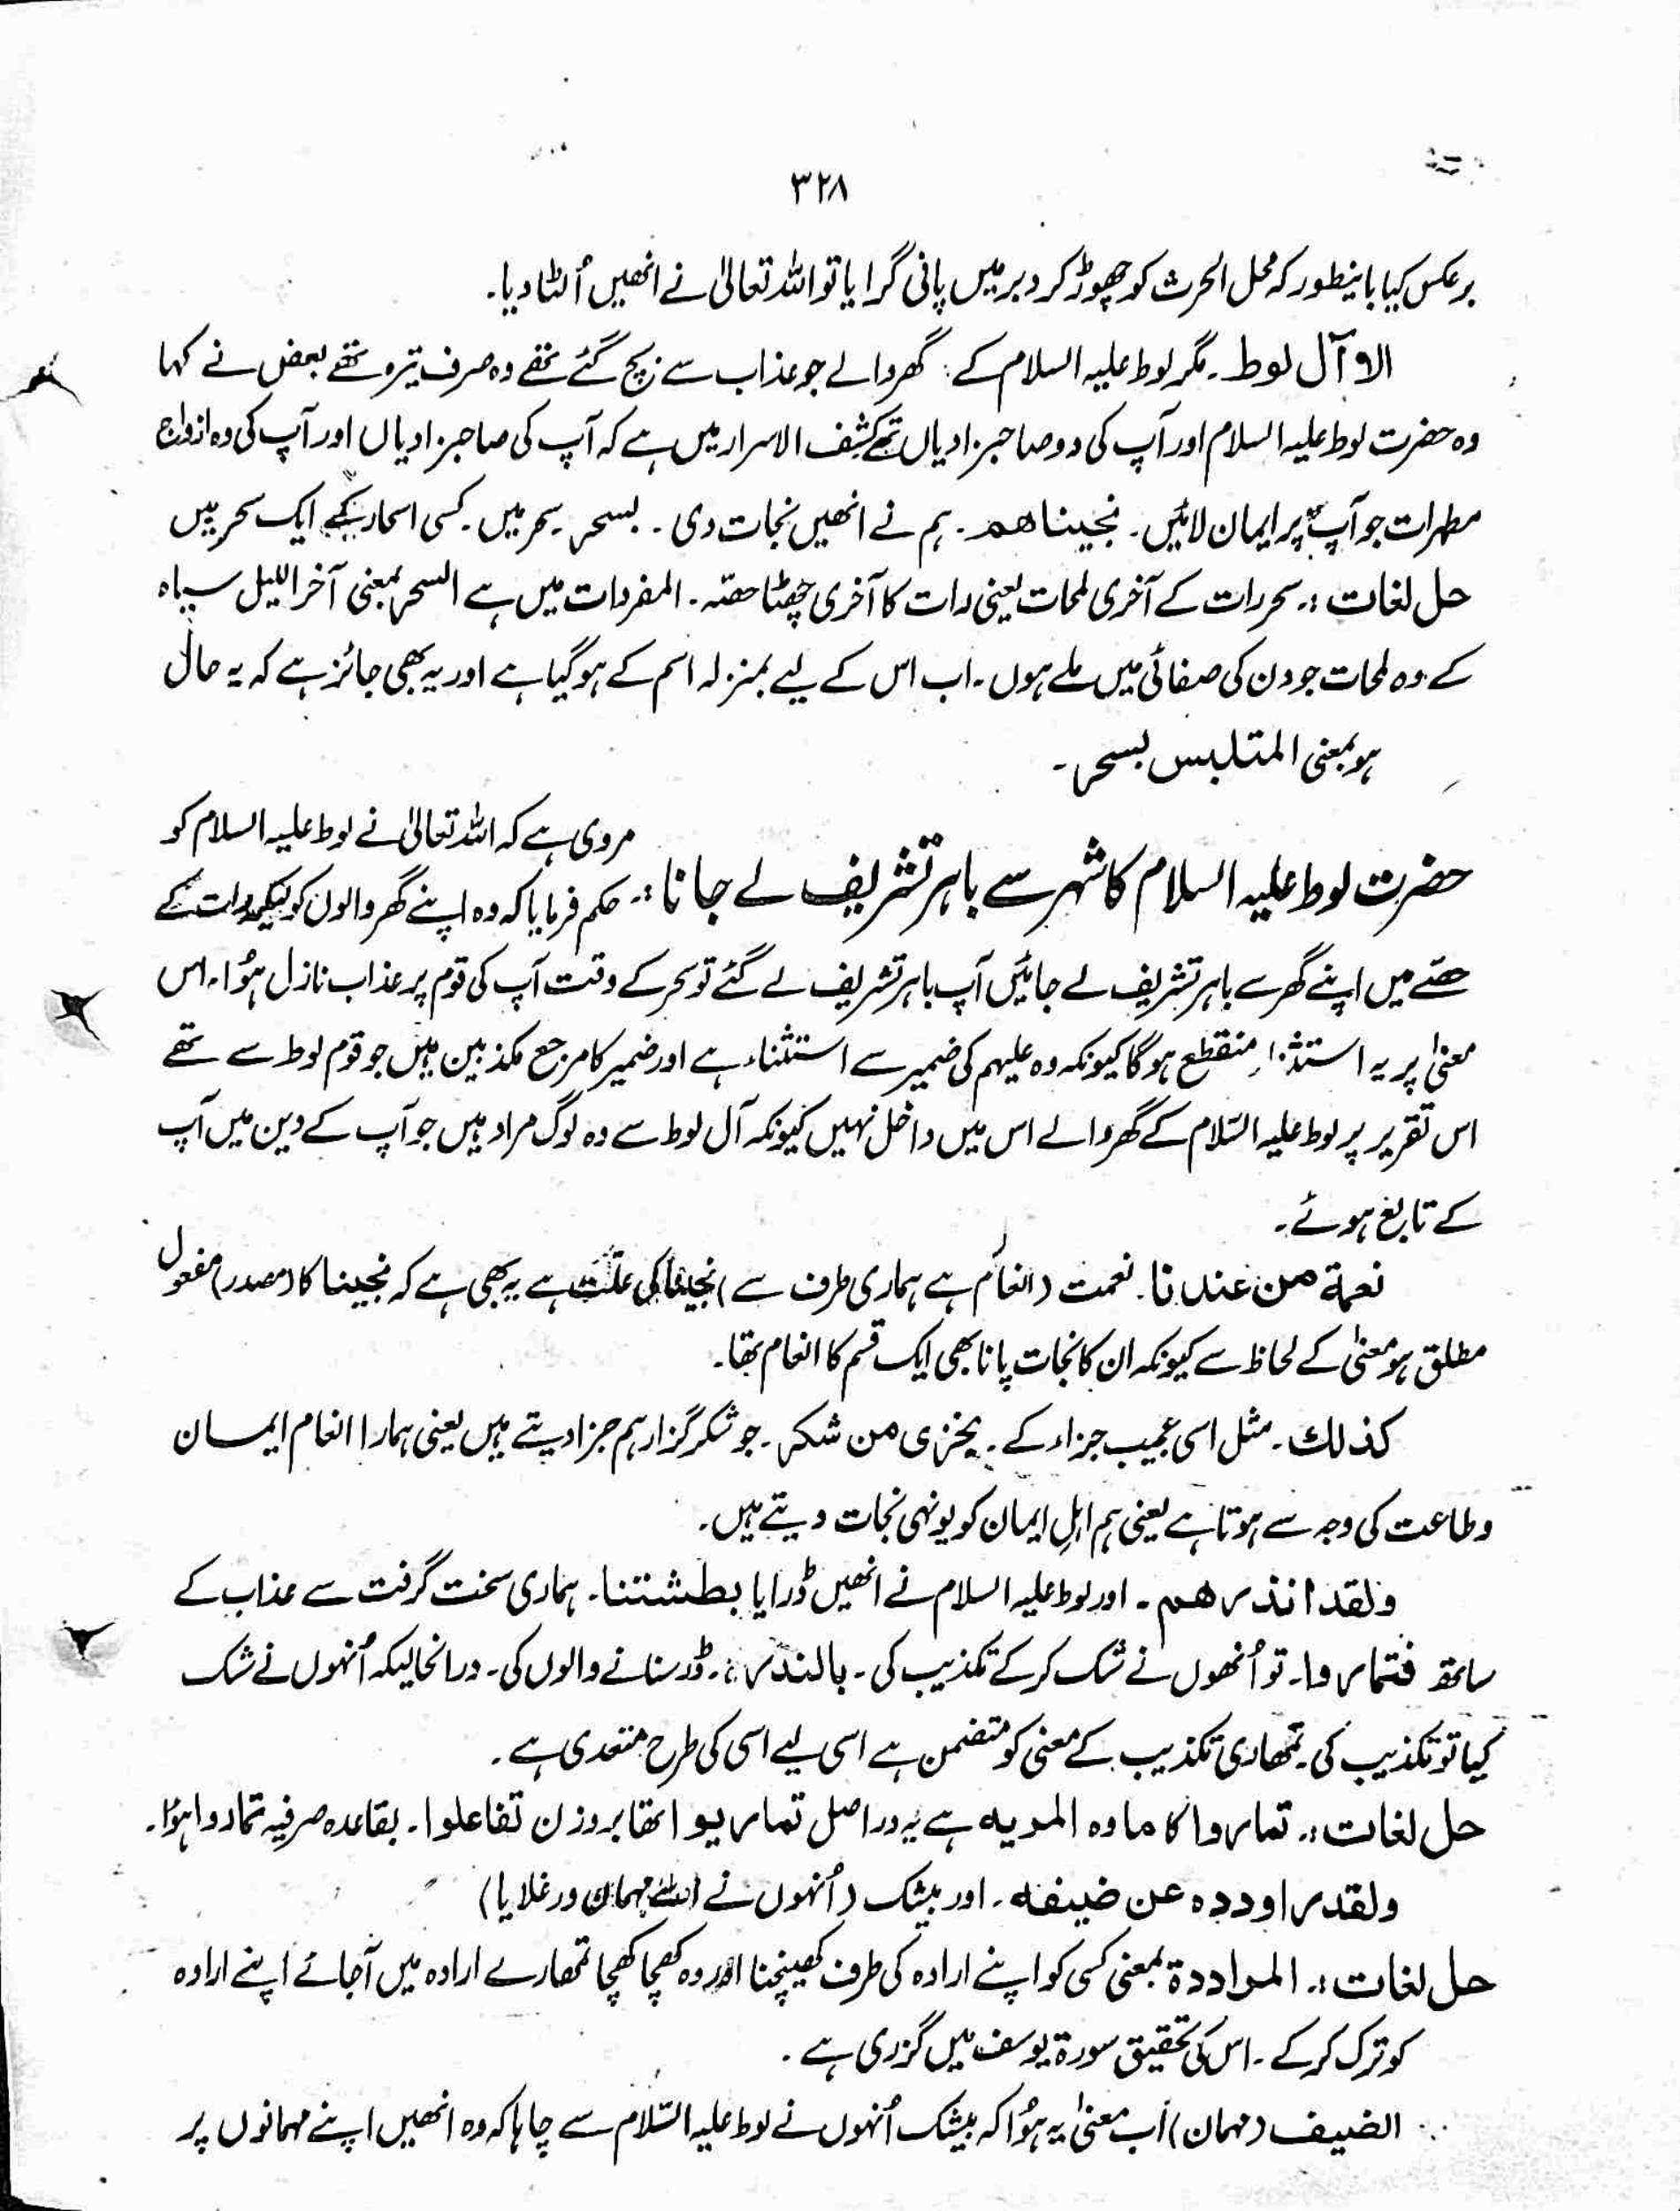 ۳۲۸
برعکس کیا بانیطور کہ محل الحرث کو چھوڑ کر دبر میں پانی گرایا تو اللہ تعالیٰ نے انھیں اُلٹا دیا۔
الا آل لوط۔ مگر لوط علیہ السلام کے گھر والے جو عذاب سے بچ گئے تھے وہ صرف تیرہ تھے بعض نے کہا
وہ حضرت لوط علیہ السلام اور آپ کی دو صاحبزادیاں تھے کشف الاسرار میں ہے کہ آپ کی صاحبزادیاں اور آپ کی وہ ازواج
مطہرات جو آپ پر ایمان لائیں۔ نجیناھم۔ ہم نے انھیں نجات دی۔ بسحر۔ سحر میں۔ کسی اسحار کے ایک سحر میں
حل لغات :۔ سحر رات کے آخری لمحات یعنی رات کا آخری چھٹا حصّہ۔ المفردات میں ہے السحر بمعنی آخر اللیل سیاہ
کے وہ لمحات جو دن کی صفائی میں ملے ہوں۔ اب اس کے لیے بمنزلہ اسم کے ہو گیا ہے اور یہ بھی جائز ہے کہ یہ حال
ہو بمعنی المتلبس بسحر۔
حضرت لوط علیہ السلام کا شہر سے باہر تشریف لے جانا :۔ مروی ہے کہ اللہ تعالیٰ نے لوط علیہ السلام کو
حکم فرمایا کہ وہ اپنے گھر والوں کو لیکر رات کے
حصّے میں اپنے گھر سے باہر تشریف لے جائیں آپ باہر تشریف لے گئے تو سحر کے وقت آپ کی قوم پر عذاب نازل ہُوا۔ اس
معنیٰ پر یہ استثناء منقطع ہوگا کیونکہ وہ علیہم کی ضمیر سے استثناء ہے اور ضمیر کا مرجع مکذبین ہیں جو قوم لوط سے تھے
اس تقریر پر لوط علیہ السّلام کے گھر والے اس میں داخل نہیں کیونکہ آل لوط سے وہ لوگ مراد ہیں جو آپ کے دین میں آپ
کے تابع ہوئے۔
نعمة من عندنا۔ نعمت (انعام ہے ہماری طرف سے) نجینا کی علّت ہے یہ بھی ہے کہ نجینا کا (مصدر) مفعول
مطلق ہو معنیٰ کے لحاظ سے کیونکہ ان کا نجات پانا بھی ایک قسم کا انعام تھا۔
کذلك۔ مثل اسی عجیب جزاء کے۔ یجزی من شکر۔ جو شکر گزار ہم جزا دیتے ہیں یعنی ہمارا انعام ایمان
و طاعت کی وجہ سے ہوتا ہے یعنی ہم اہلِ ایمان کو یونہی نجات دیتے ہیں۔
ولقد انذرھم۔ اور لوط علیہ السلام نے انھیں ڈرایا بطشتنا۔ ہماری سخت گرفت سے عذاب کے
ساتھ فتماروا۔ تو اُنھوں نے شک کر کے تکذیب کی۔ بالنذر :۔ ڈر سنانے والوں کی۔ درانحالیکہ اُنہوں نے شک
کیا تو تکذیب کی تمھاری تکذیب کے معنی کو متضمن ہے اسی لیے اسی کی طرح متعدی ہے۔
حل لغات :۔ تماروا کا مادہ المریہ ہے یہ دراصل تماریوا تھا بروزن تفاعلوا۔ بقاعدہ صرفیہ تماروا ہوا۔
ولقد راودوہ عن ضیفہ۔ اور بیشک (اُنہوں نے مہمان ورغلایا)
حل لغات :۔ المراددة بمعنی کسی کو اپنے ارادہ کی طرف کھینچنا اور وہ کھچا کھچا تمھارے ارادہ میں آجائے اپنے ارادہ
کو ترک کر کے۔ اس کی تحقیق سورة یوسف میں گزری ہے۔
الضیف (مہمان) اَب معنیٰ یہ ہُوا کہ بیشک اُنہوں نے لوط علیہ السّلام سے چاہا کہ وہ انھیں اپنے مہمانوں پر